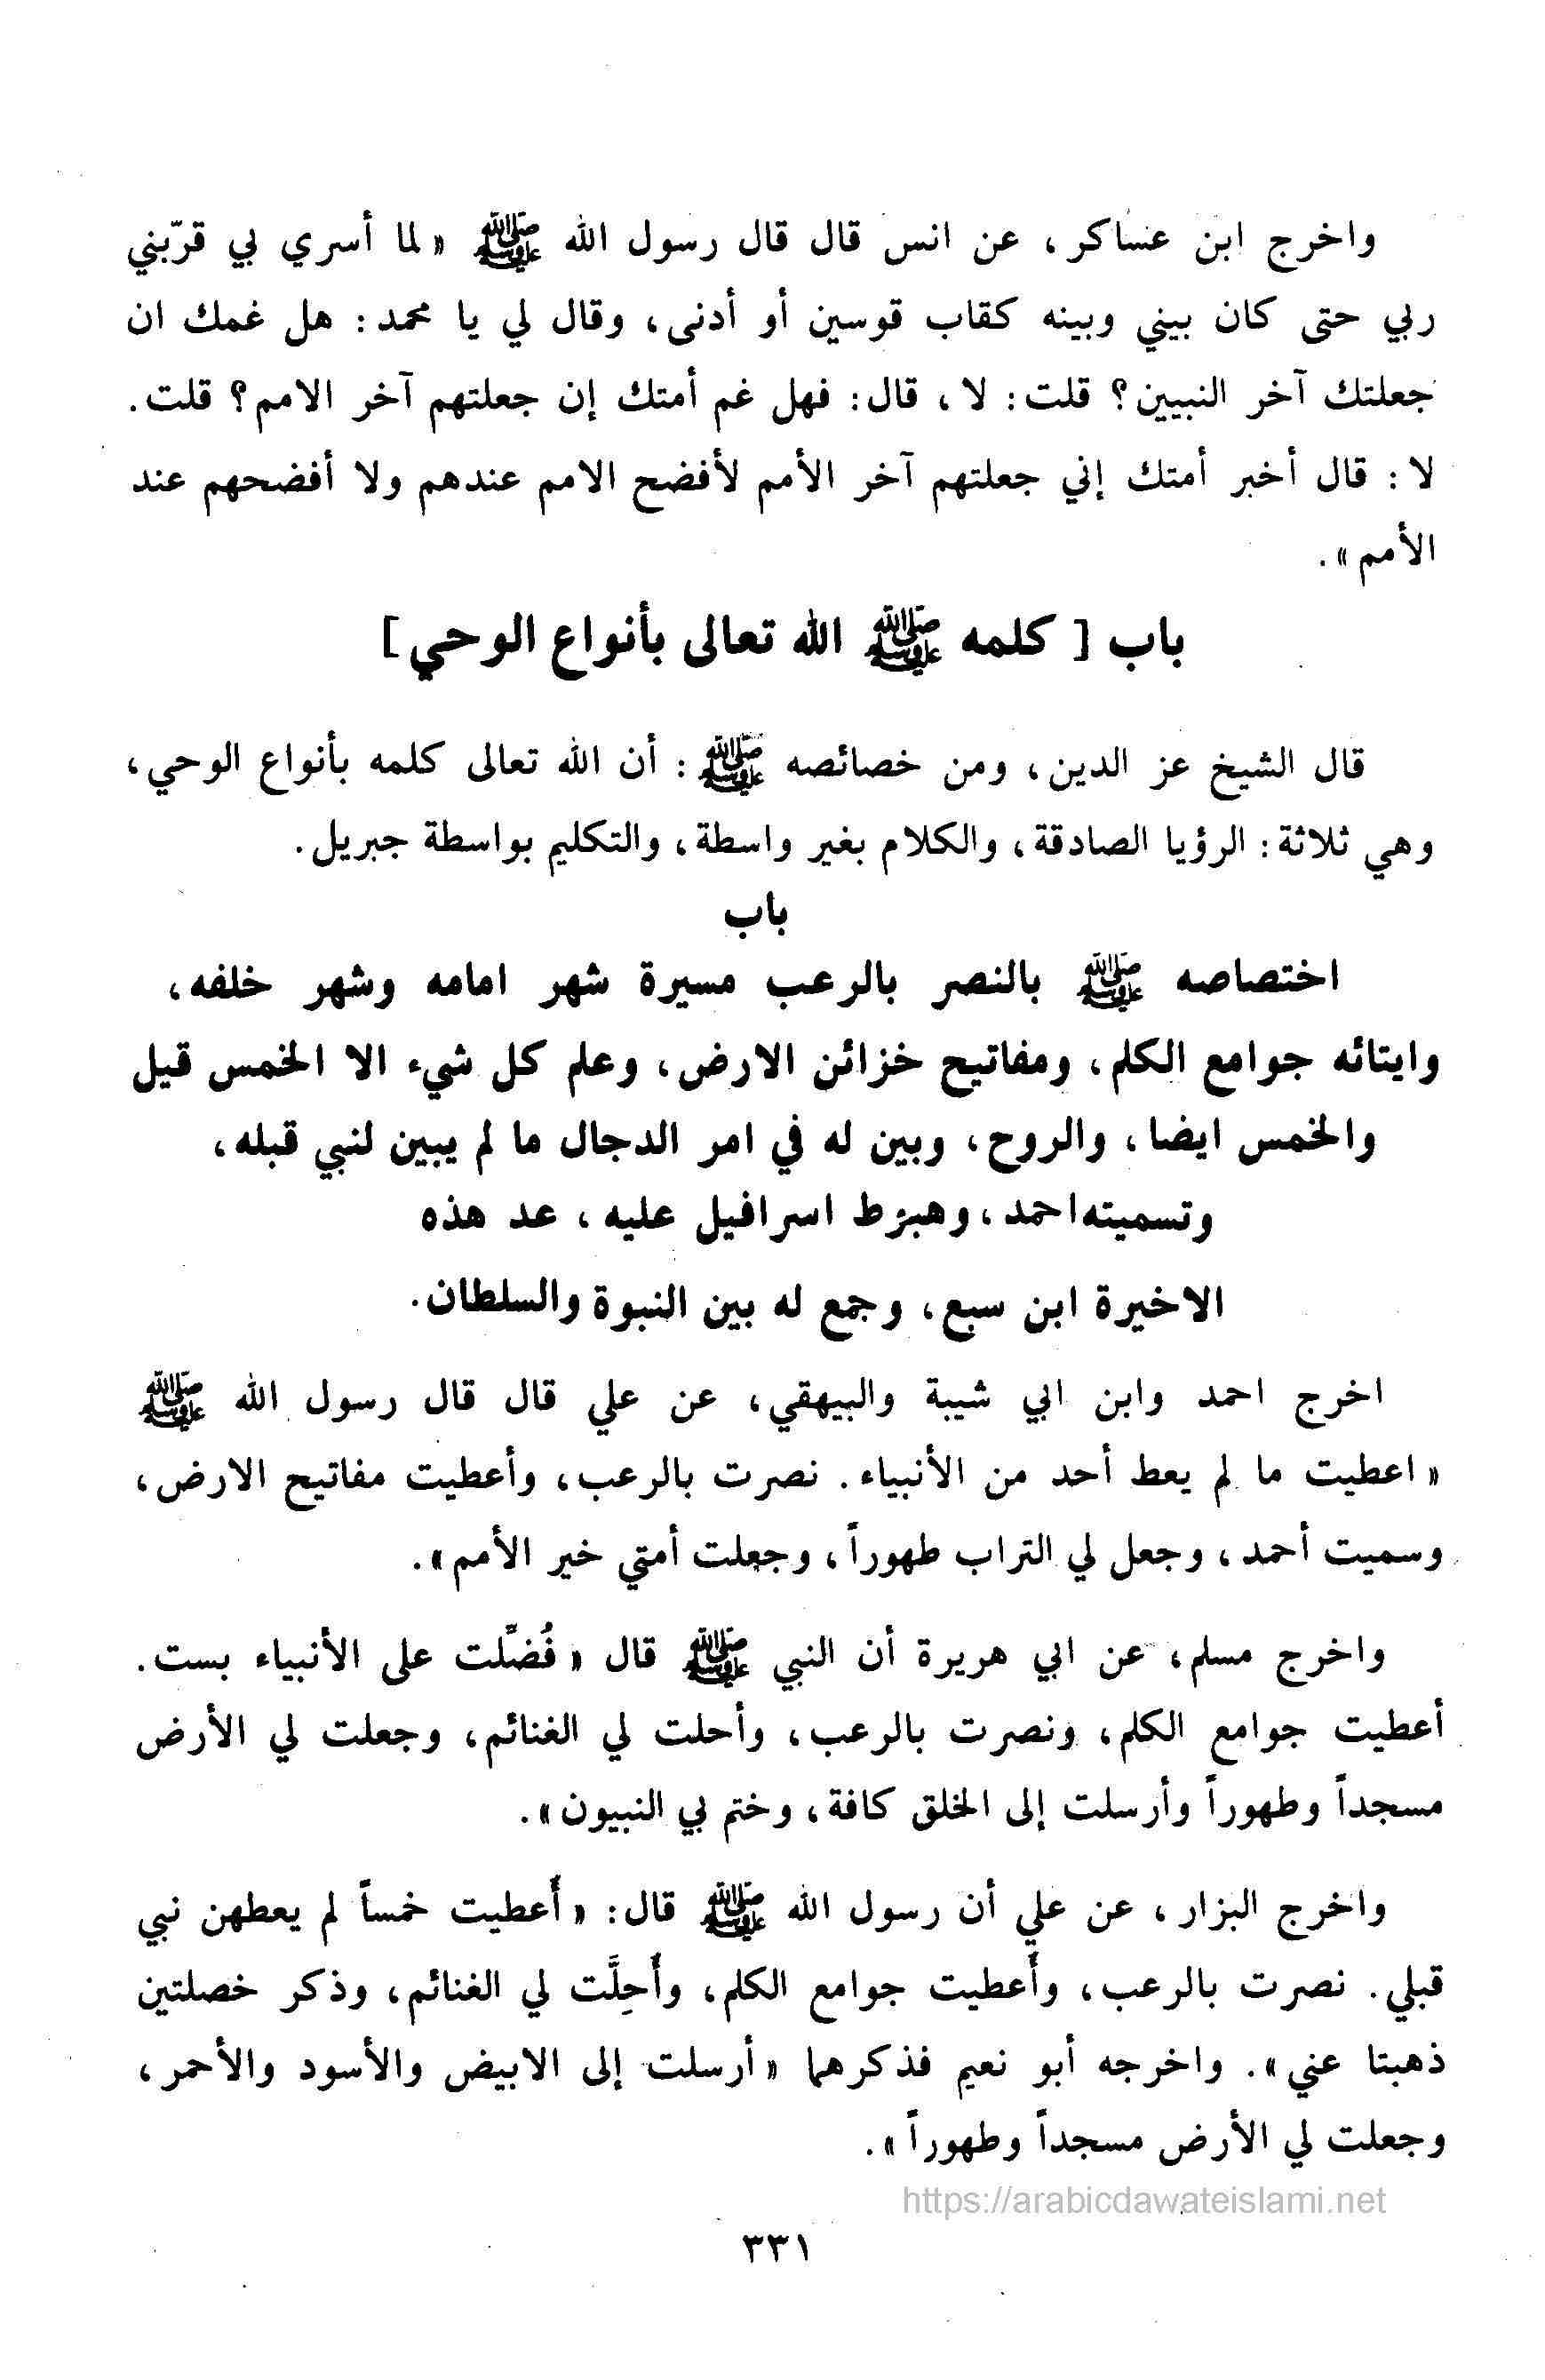 واخرج ابن عساكر، عن انس قال قال رسول الله ﷺ « لما أسري بي قرّبني
ربي حتى كان بيني وبينه كقاب قوسين أو أدنى، وقال لي يا محمد: هل غمك ان
جعلتك آخر النبيين؟ قلت: لا، قال: فهل غم أمتك إن جعلتهم آخر الامم؟ قلت.
لا: قال أخبر أمتك إني جعلتهم آخر الأمم لأفضح الامم عندهم ولا أفضحهم عند
الأمم ».
باب [ كلمه ﷺ الله تعالى بأنواع الوحي]
قال الشيخ عز الدين، ومن خصائصه ﷺ: أن الله تعالى كلمه بأنواع الوحي،
وهي ثلاثة: الرؤيا الصادقة، والكلام بغير واسطة، والتكليم بواسطة جبريل.
باب
اختصاصه ﷺ بالنصر بالرعب مسيرة شهر امامه وشهر خلفه،
وايتائه جوامع الكلم، ومفاتيح خزائن الارض، وعلم كل شيء الا الخمس قيل
والخمس ايضا، والروح، وبين له في امر الدجال ما لم يبين لنبي قبله،
وتسميته احمد، وهبوط اسرافيل عليه، عد هذه
الاخيرة ابن سبع، وجمع له بين النبوة والسلطان.
اخرج احمد وابن ابي شيبة والبيهقي، عن علي قال قال رسول الله ﷺ
« اعطيت ما لم يعط أحد من الأنبياء. نصرت بالرعب، وأعطيت مفاتيح الارض،
وسميت أحمد، وجعل لي التراب طهوراً، وجعلت أمتي خير الأمم ».
واخرج مسلم، عن ابي هريرة أن النبي ﷺ قال « فُضِّلت على الأنبياء بست.
أعطيت جوامع الكلم، ونصرت بالرعب، وأحلت لي الغنائم، وجعلت لي الأرض
مسجداً وطهوراً وأرسلت إلى الخلق كافة، وختم بي النبيون ».
واخرج البزار، عن علي أن رسول الله ﷺ قال: « أُعطيت خمساً لم يعطهن نبي
قبلي. نصرت بالرعب، وأُعطيت جوامع الكلم، وأُحِلَّت لي الغنائم، وذكر خصلتين
ذهبتا عني ». واخرجه أبو نعيم فذكرهما « أرسلت إلى الابيض والأسود والأحمر،
وجعلت لي الأرض مسجداً وطهوراً ».
https://arabicdawateislami.net
٣٣١